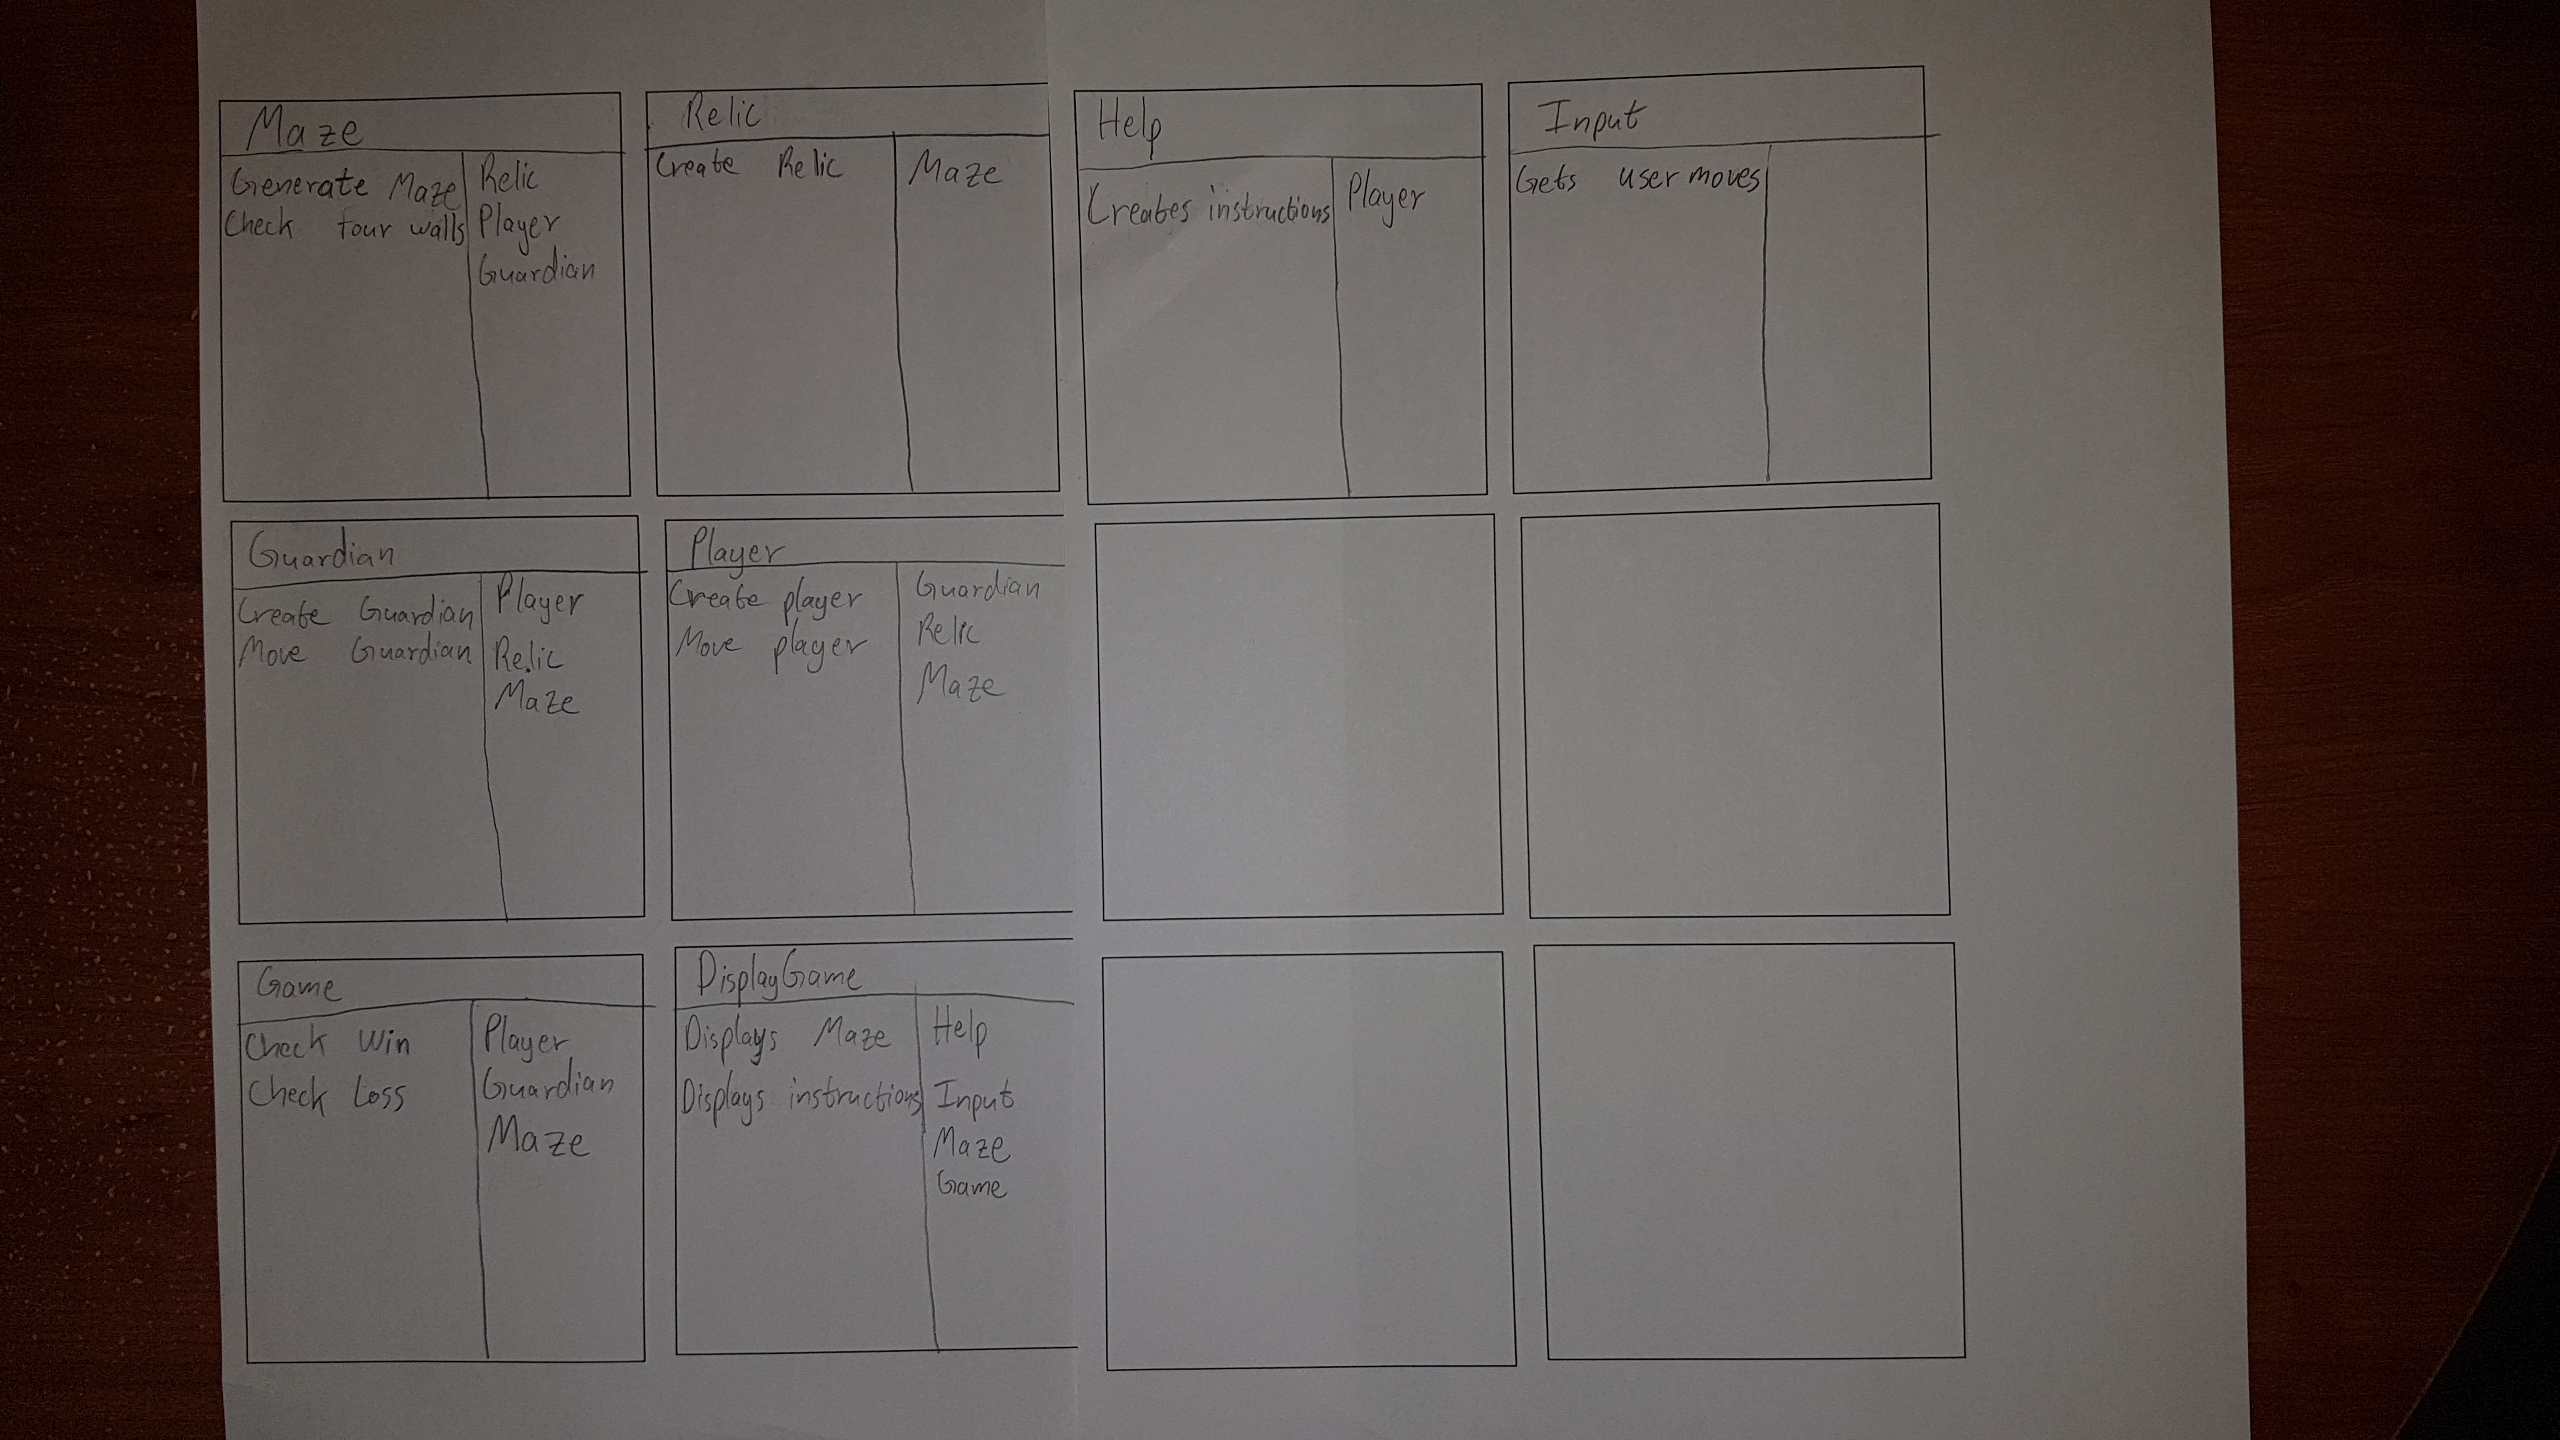 Maze
Generate Maze
Check four walls
Relic
Player
Guardian
Relic
Create Relic
Maze
Help
Creates instructions
Player
Input
Gets user moves
Guardian
Create Guardian
Move Guardian
Player
Relic
Maze
Player
Create player
Move player
Guardian
Relic
Maze
Game
Check Win
Check Loss
Player
Guardian
Maze
DisplayGame
Displays Maze
Displays instructions
Help
Input
Maze
Game